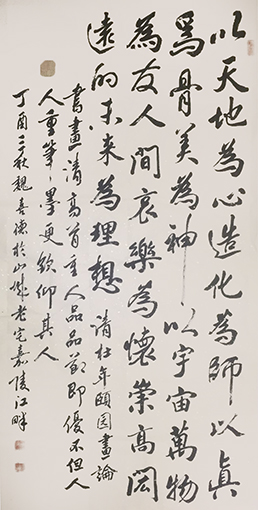 以天地為心造化為師以真
為骨美為神以宇宙萬物
為友人間哀樂為懷崇高闊
遠的未来為理想 清杜年頤園畫論
書畫清高首重人品品節即優不但人
人重筆丶墨更欽仰其人
丁酉三秋魏喜德於山城老宅嘉陵江畔